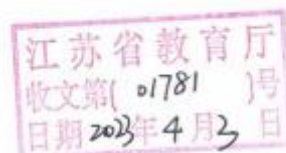 江苏省教育厅
收文第(01781)号
日期2023年4月3日